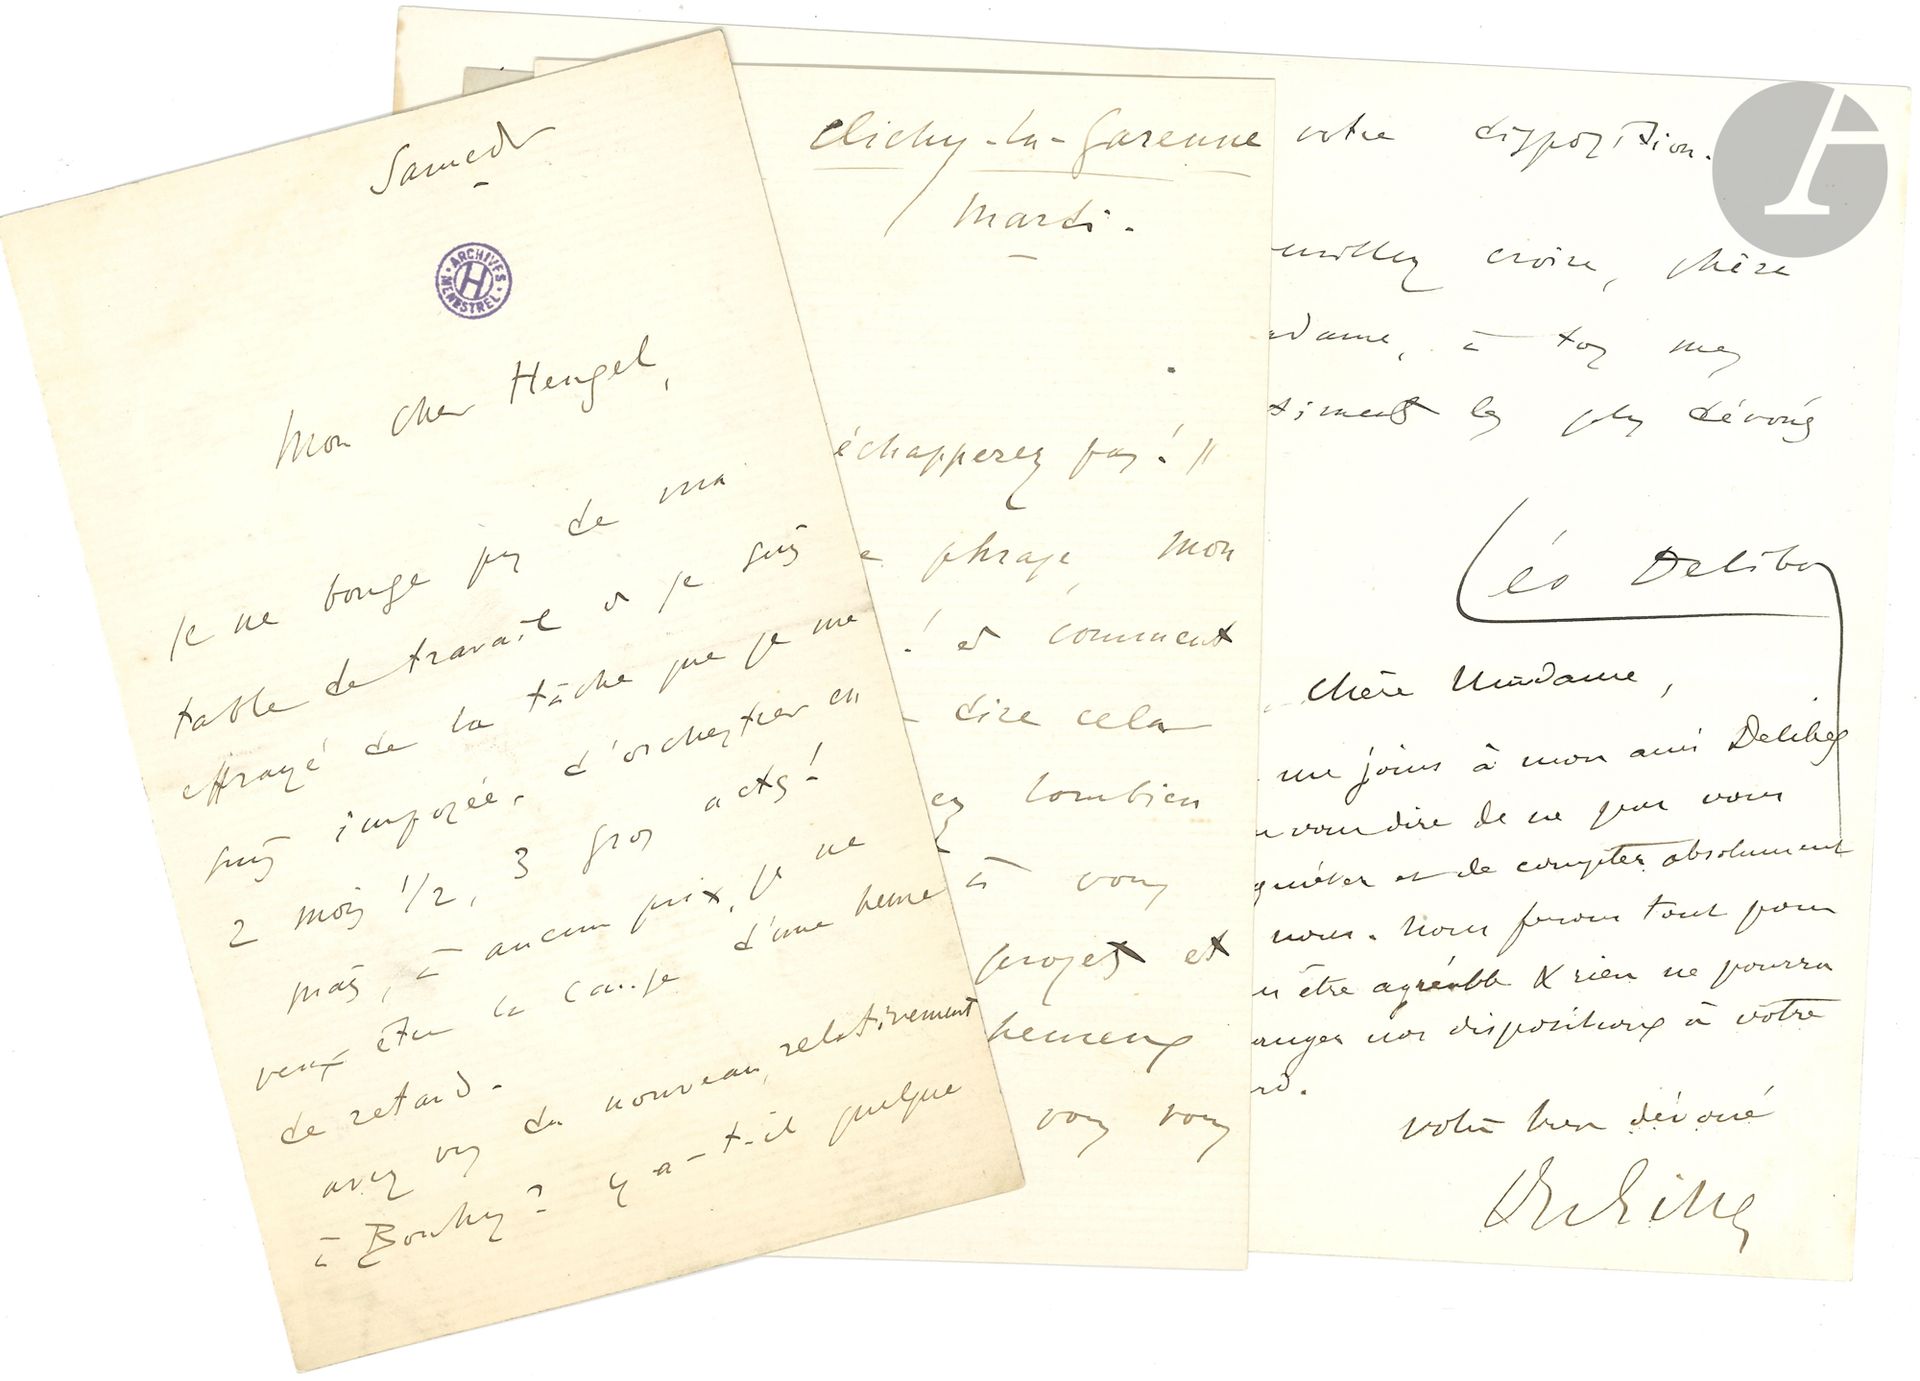 Samedi
ARCHIVES
H
MENESTREL
Mon cher Heugel,
Je ne bouge pas de ma
table de travail et je suis
effrayé de la tâche que je me
suis imposée, d'orchestrer en
2 mois 1/2, 3 gros actes!
mais, à aucun prix, je ne
veux être la cause d'une heure
de retard.
avez vous du nouveau, relativement
à Bouhy? y a-t-il quelque
Clichy-la-Garenne
Mardi.
échapperez pas! "
phrase, mon
! et comment
dire cela
combien
à vous
projets et
heureux
vous vous
votre disposition.
veuillez croire, chère
adame, à tous mes
timents les plus dévoués
Léo Delibes
Chère Madame,
me joins à mon ami Delibes
vous dire de ne pas vous
quiéter et de compter absolument
nous. Nous ferons tout pour
être agréable & rien ne pourra
anger nos dispositions à votre
rd.
votre bien dévoué